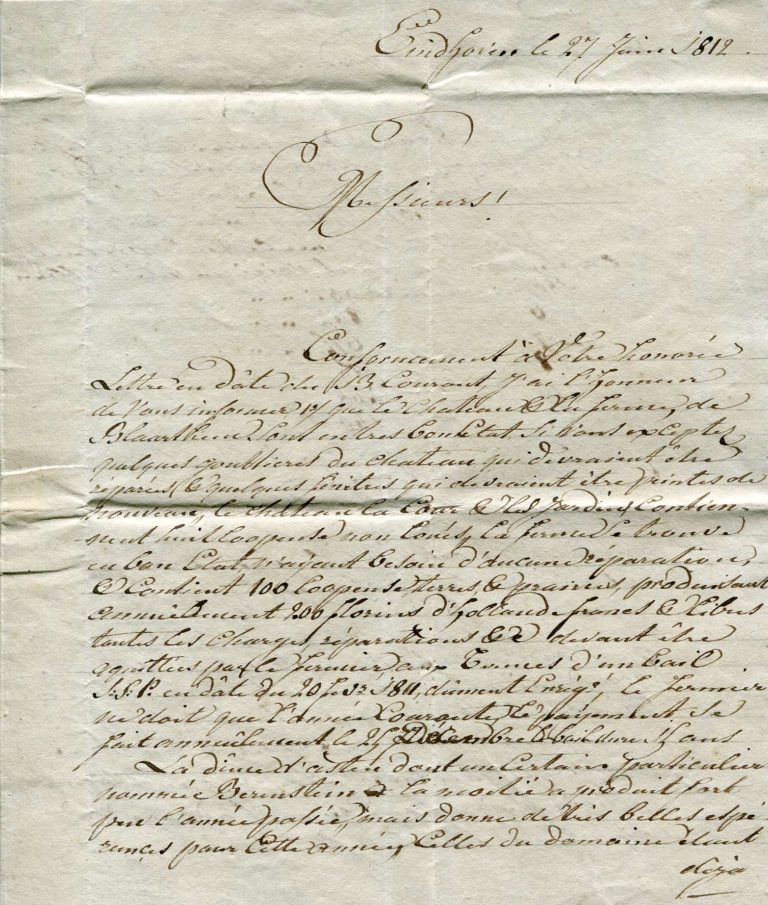 Eindhoven le 27 Juin 1812
Messieurs!
Conformement à Votre honorée
Lettre en dâte du 13 Courant, J'ai l'honneur
de Vous informer 1º que le Chateau & la ferme, de
Blaarthem sont en tres bon Etat, si Vous exceptez
quelques gouttieres du chateau qui devraient être
réparées & quelques qui devraient être peintes de
nouveau, le château la Cour & les Jardins Contien-
nent huit Loopense non loués, la ferme se trouve
en bon Etat n'ayant besoin d'aucune réparation,
& Contient 100 Loopense terres & prairies, produisant
annuêlement 200 florins d'hollande francs & libres
toutes les Charges, réparations &c devant être
aquitées par le fermier aux Termes d'un bail
S:S:P. en dâte du 20 1811, dûment Enrégé, le fermier
ne doit que l'année Courante, le payement se
fait annuêlement le 25 Décembre & bail dure ans
La dime d'asten dont un Certain particulier
nommée Berenstein a la moitié a produit fort
peu l'année passée, mais donne de très belles espé-
rances pour Cette année, Celles du domaine étant
deja